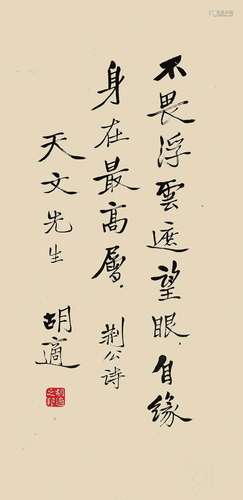 不畏浮雲遮望眼，自緣
身在最高層．荆公诗
天文先生
胡適
胡適之印